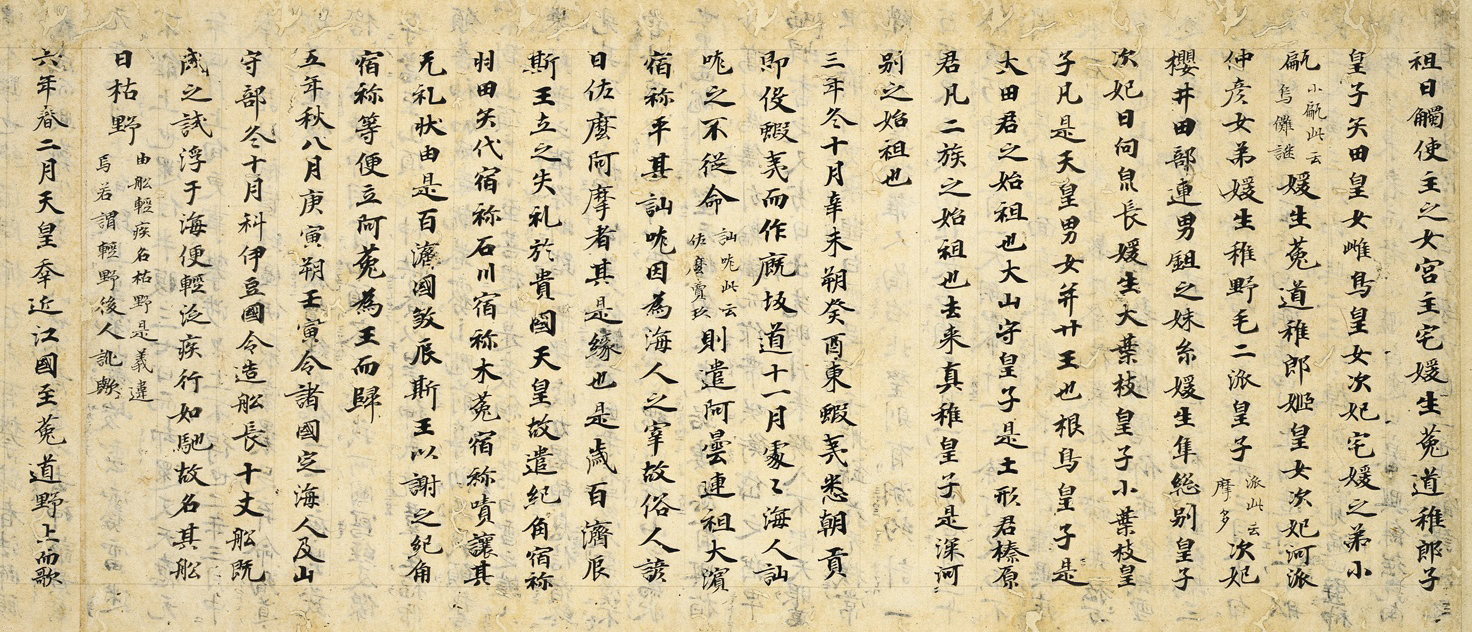 祖日觸使主之女宮主宅媛生菟道稚郎子
皇子矢田皇女雌鳥皇女次妃宅媛之弟小
甂小甂此云烏儺謎媛生菟道稚郎姬皇女次妃河派
仲彦女弟媛生稚野毛二派皇子派此云摩多次妃
櫻井田部連男鉏之妹糸媛生隼総別皇子
次妃日向泉長媛生大葉枝皇子小葉枝皇
子凡是天皇男女并廿王也根鳥皇子是
大田君之始祖也大山守皇子是土形君榛原
君凡二族之始祖也去来真稚皇子是深河
別之始祖也
三年冬十月辛未朔癸酉東蝦夷悉朝貢
即伇蝦夷而作厩坂道十一月處〻海人訕
哤之不従命訕哤此云佐麼賣玖則遣阿曇連祖大濱
宿祢平其訕哤因為海人之宰故俗人諺
曰佐麼阿摩者其是縁也是歳百濟辰
斯王立之失礼於貴國天皇故遣紀角宿祢
羽田矢代宿祢石川宿祢木菟宿祢嘖讓其
无礼状由是百濟國敘辰斯王以謝之紀角
宿祢等便立阿菟為王而歸
五年秋八月庚寅朔壬寅令諸國定海人及山
守部冬十月科伊豆國令造舩長十丈舩既
成之試浮于海便輕泛疾行如馳故名其舩
曰枯野由舩輕疾名枯野是義違焉若謂輕野後人訛歟
六年春二月天皇幸近江國至菟道野上而歌